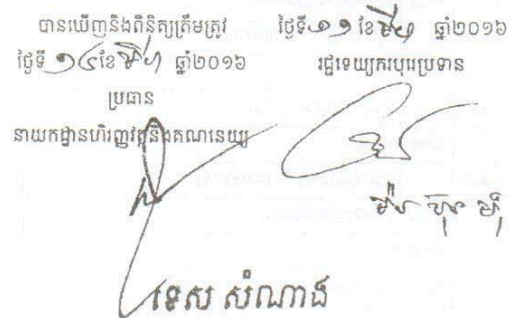 បានឃើញនិងពិនិត្យត្រឹមត្រូវ
ថ្ងៃទី ១៤ ខែ មីនា ឆ្នាំ២០១៦
ប្រធាន
នាយកដ្ឋានហិរញ្ញវត្ថុនិងគណនេយ្យ
ទេស សំណាង
ថ្ងៃទី ១១ ខែ មីនា ឆ្នាំ២០១៦
រដ្ឋទេយ្យករបុរេប្រទាន